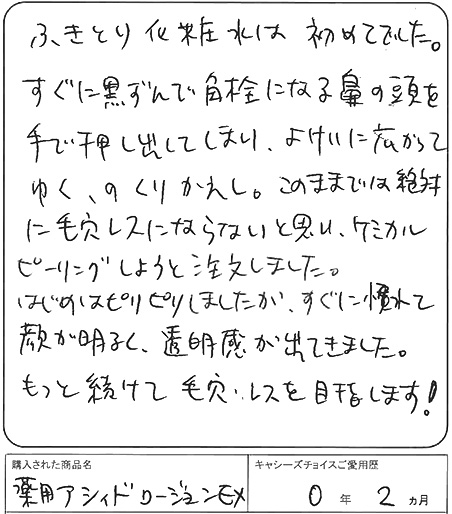 ふきとり化粧水は初めてでした。
すぐに黒ずんで角栓になる鼻の頭を
手で押し出してしまい、よけいに広がって
ゆく、のくりかえし。このままでは絶対
に毛穴レスにならないと思い、ケミカル
ピーリングしようと注文しました。
はじめはピリピリしましたが、すぐに慣れて
顔が明るく、透明感が出てきました。
もっと続けて毛穴・レスを目指します!
購入された商品名
薬用アシィドローションEX
キャシーズチョイスご愛用歴
0年2ヵ月